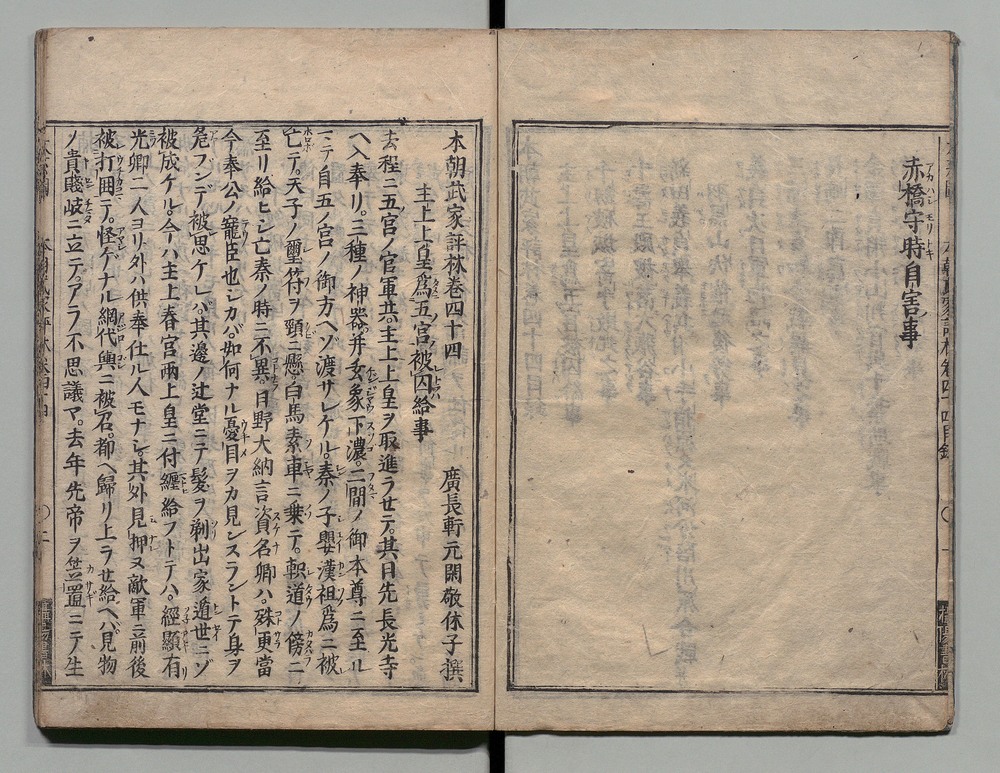 赤橋守時自害事
本朝武家評林巻四十四
廣長軒元閑敬休子撰
主上上皇爲五宮被囚給事
去程ニ五宮ノ官軍共主上上皇ヲ取進ラセテ其日先長光寺
ヘ入奉リ三種ノ神器并玄象下濃二間ノ御本尊ニ至ル
マテ自五ノ宮ノ御方ヘゾ渡サレケル秦ノ子嬰漢祖爲ニ被
亡テ天子ノ璽符ヲ頸ニ懸白馬素車ニ乗テ軹道ノ傍ニ
至リ給ヒシ亡秦ノ時ニ不異日野大納言資名卿ハ殊更當
今奉公ノ寵臣也シカバ如何ナル憂目ヲカ見ンスラントテ身ヲ
危フンデ被思ケレバ其邊ノ辻堂ニテ髪ヲ剃出家遁世ニゾ
被成ケル今ハ主上春宮両上皇ニ付纏給フトテハ經顯有
光卿二人ヨリ外ハ供奉仕ル人モナシ其外見押ヌ敵軍ニ前後
被打囲テ怪ゲナル網代輿ニ被召都ヘ歸リ上ラセ給ヘバ見物
ノ貴賤岐ニ立テアラ不思議マ去年先帝ヲ笠置ニテ生